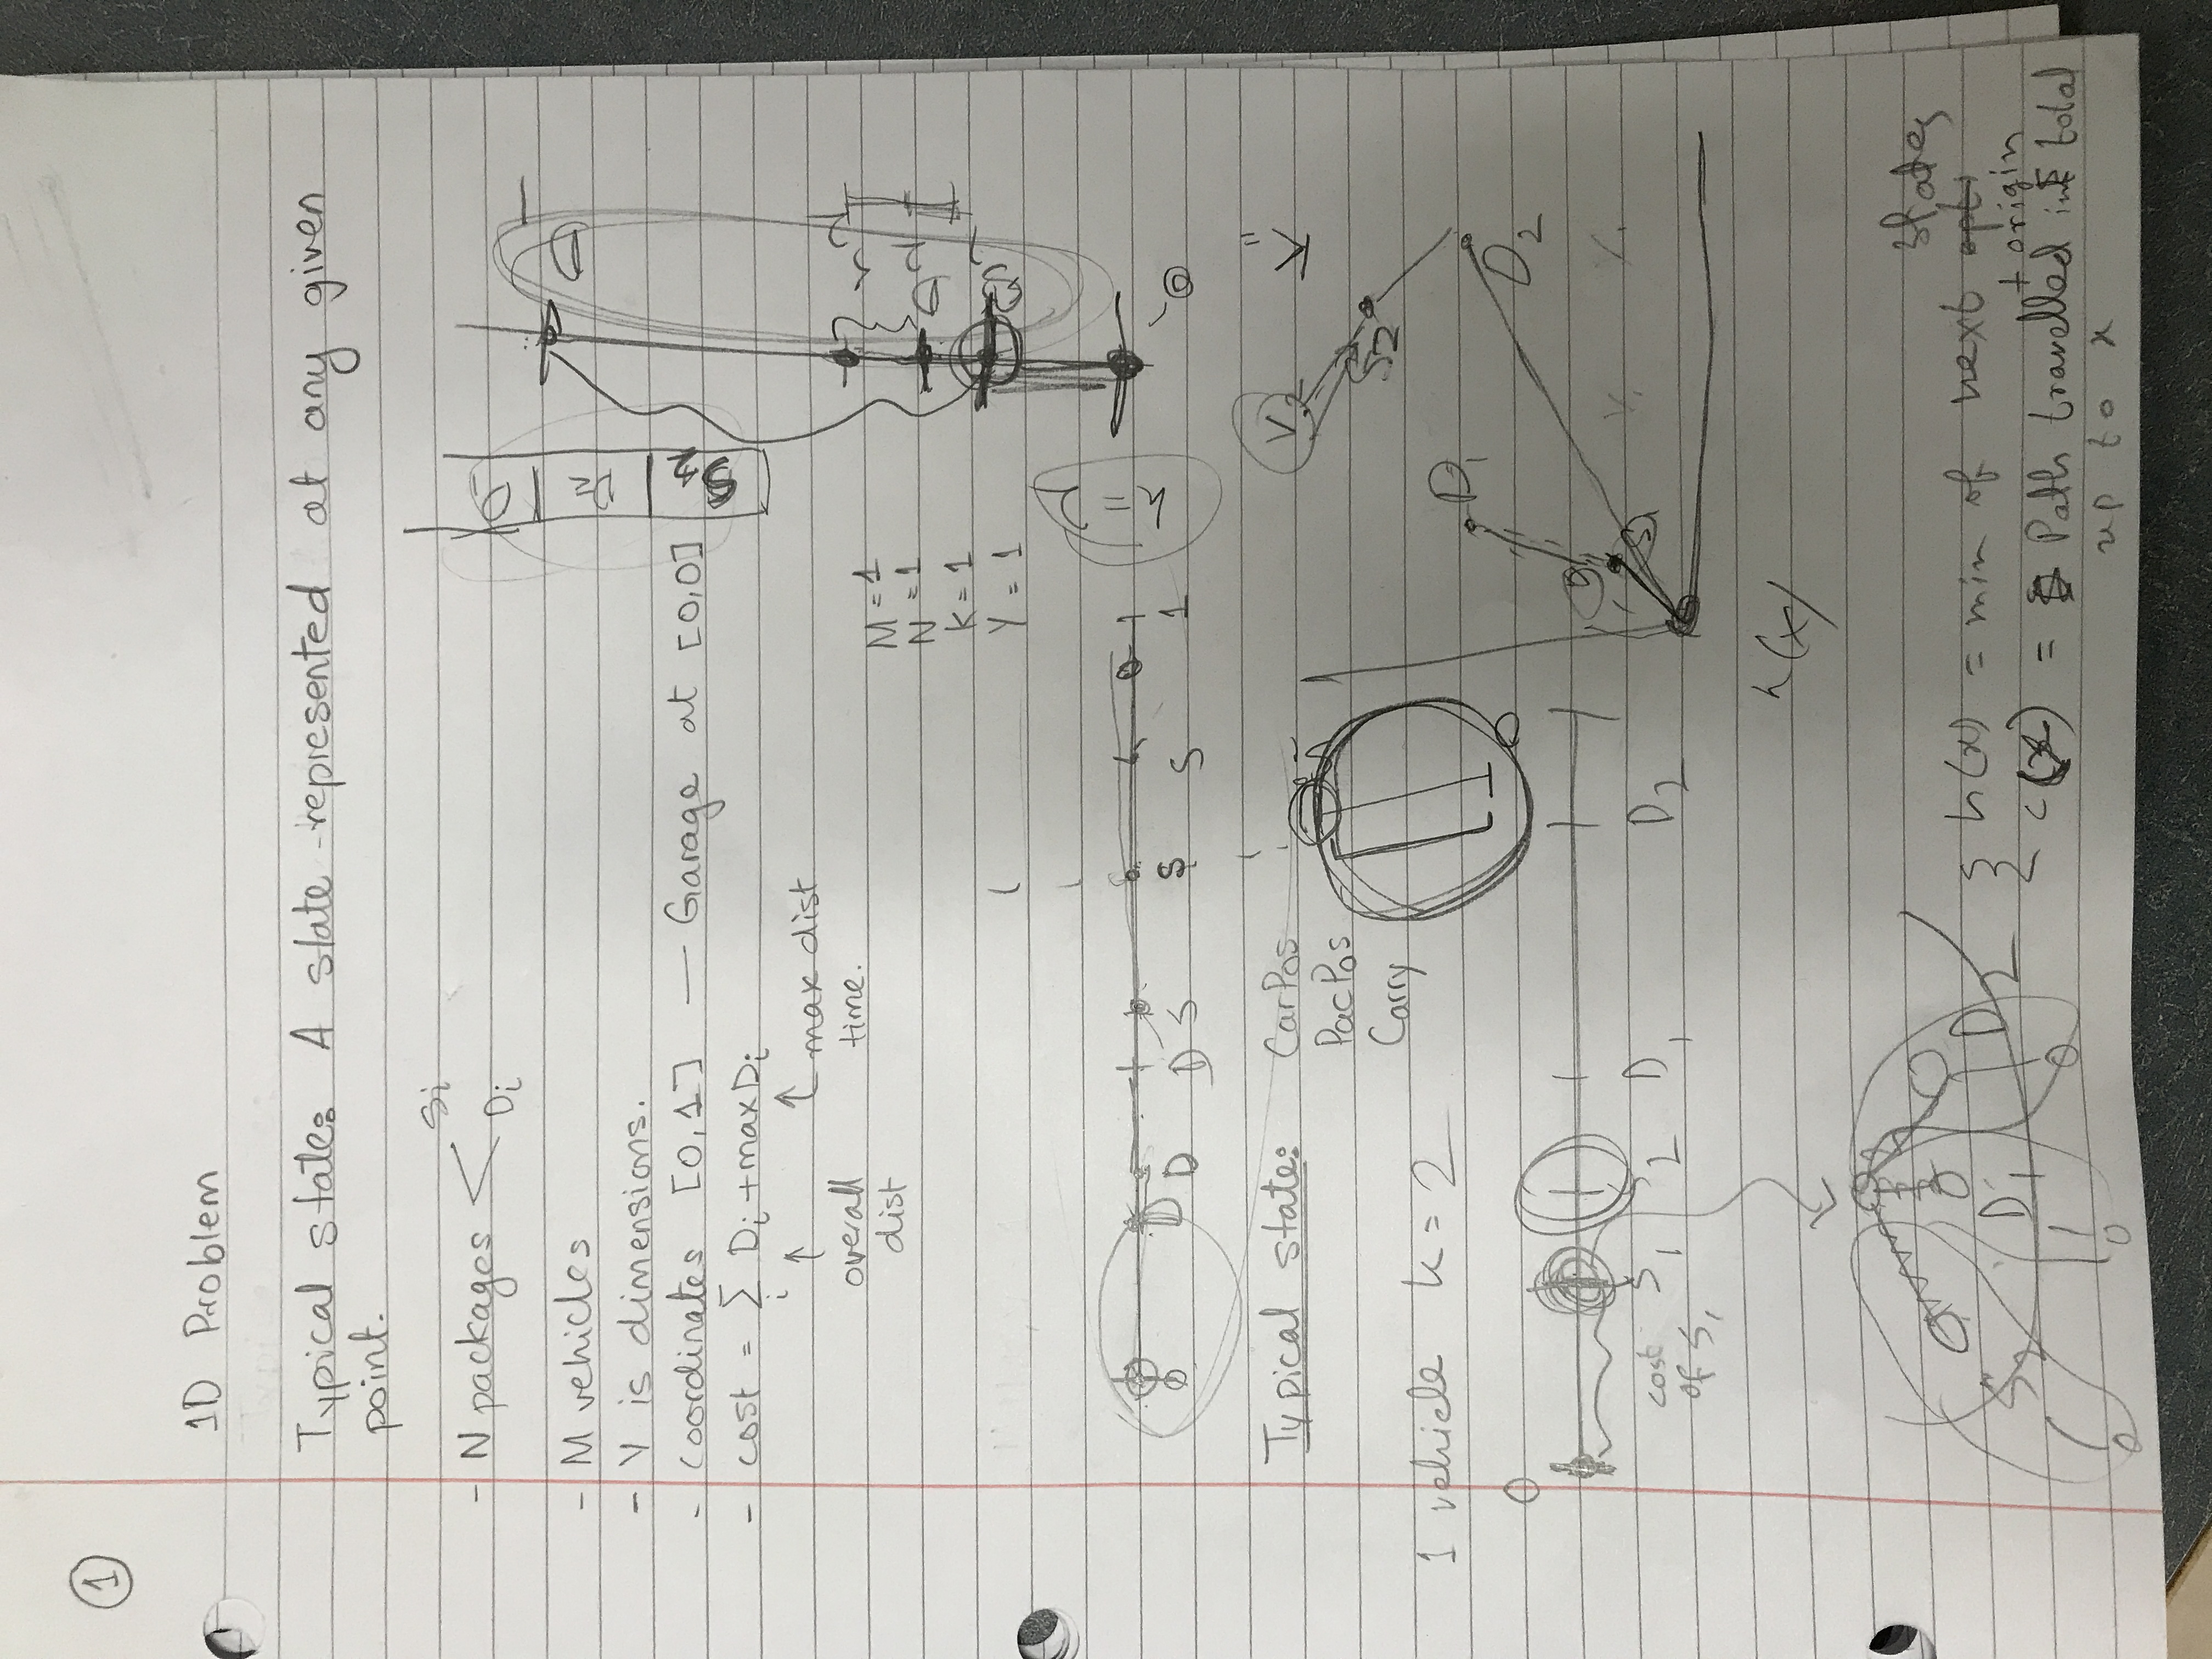 1
1D Problem
Typical state: A state represented at any given
point.
- N packages < Si
Di
- M vehicles
- Y is dimensions.
- coordinates [0,1] — Garage at [0,0]
- cost = Σ Di + max Di
i
↑ overall dist
↑ max dist time.
S2 | D2 | D1
D
S2
D2
S1
0
M = 1
N = 1
K = 1
Y = 1
k = 2
0 D D D S S S 1
Typical state: CarPos
PacPos
Carry
K =
V2
S2
D1
D2
S1
1 vehicle k = 2
0
S1 S2 D1 D2
cost
of S1
h(x)
S2 D1 D2
0 0 0
{ h(x) = min of next states
+ origin
c(x) = Path travelled in total
up to x